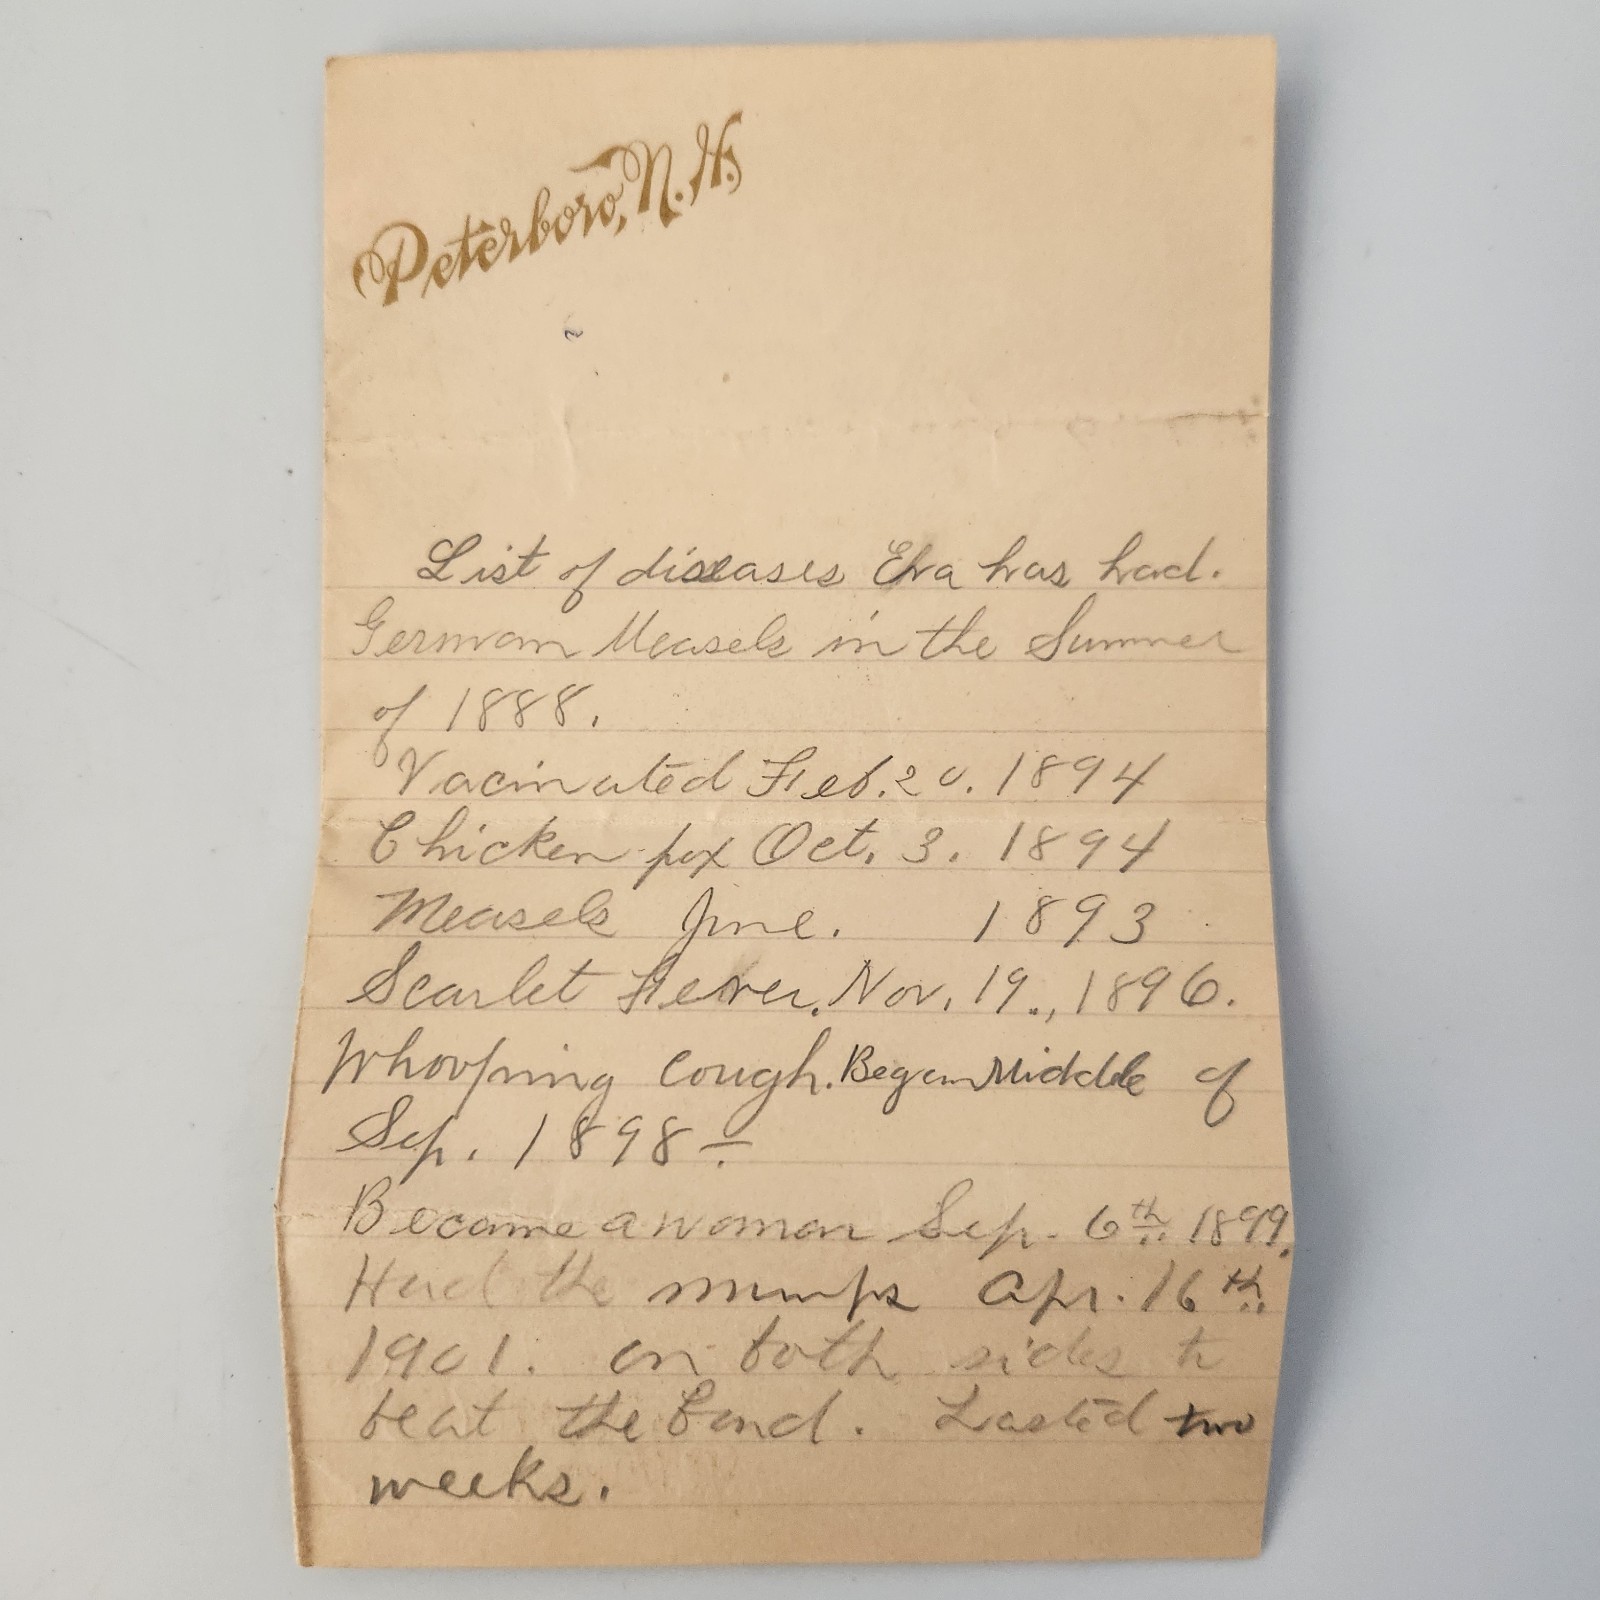 Peterboro, N.H.
List of diseases Eva has had.
German Measels in the Summer
of 1888.
Vacinated Feb. 20. 1894
Chicken pox Oct. 3. 1894
Measels June. 1893
Scarlet Fever. Nov. 19., 1896.
Whooping Cough. Began Middle of
Sep. 1898-
Became a woman Sep. 6th 1899.
Had the mumps Apr. 16th
1901. on both sides to
beat the band. Lasted two
weeks.